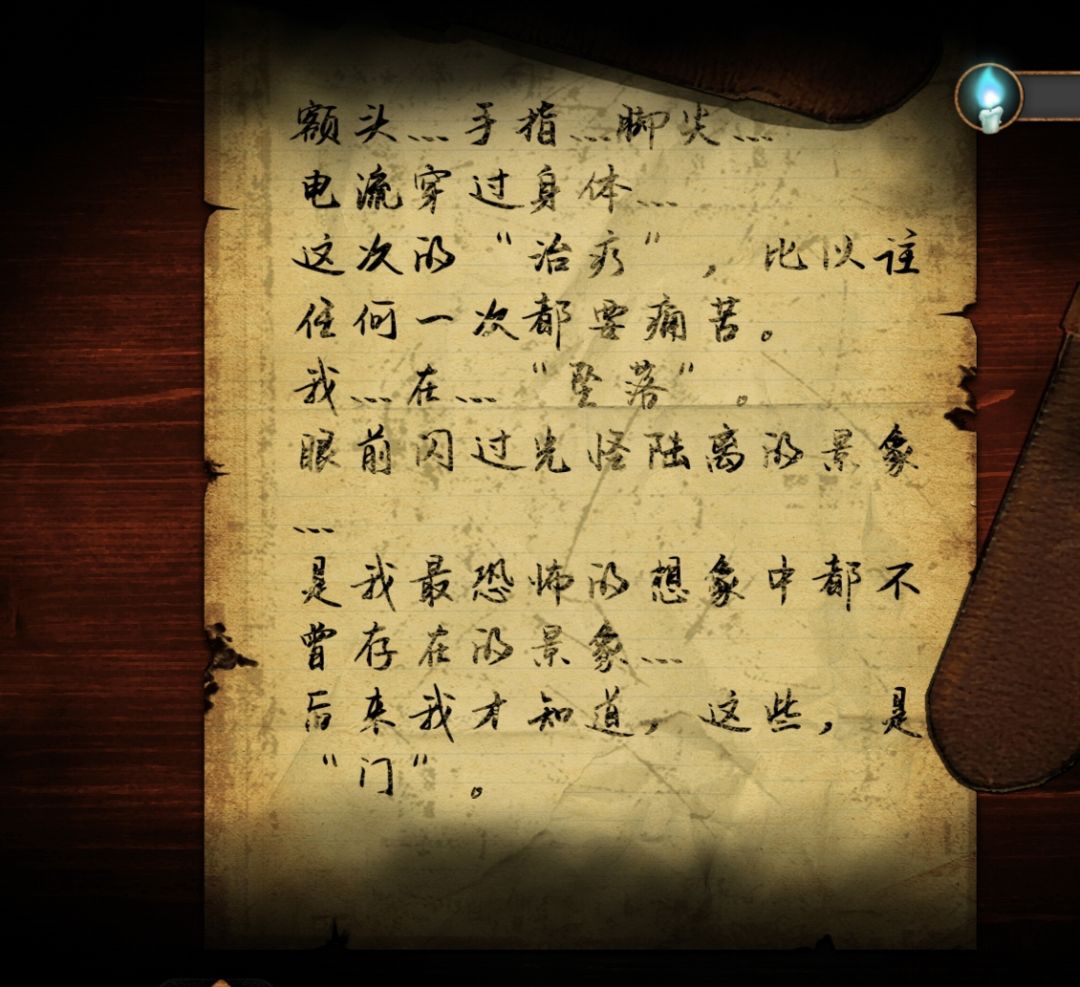 额头...手指...脚尖...
电流穿过身体...
这次的“治疗”，比以往
任何一次都要痛苦。
我...在...“坠落”。
眼前闪过光怪陆离的景象
...
是我最恐怖的想象中都不
曾存在的景象...
后来我才知道，这些，是
“门”。